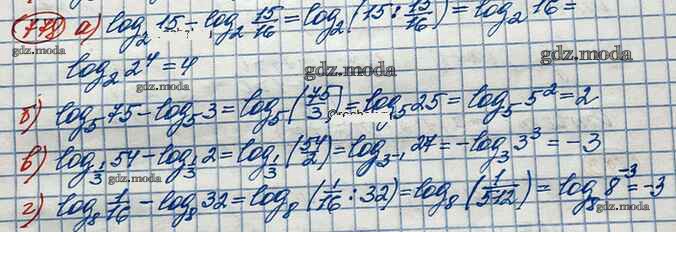 778 а) log₂ 15 - log₂ 15/16 = log₂ (15 : 15/16) = log₂ 16 =
gdz.moda gdz.moda
log₂ 2⁴ = 4
gdz.moda gdz.moda
б) log₅ 75 - log₅ 3 = log₅ (75/3) = log₅ 25 = log₅ 5² = 2
в) log_{1/3} 54 - log_{1/3} 2 = log_{1/3} (54/2) = log_{3⁻¹} 27 = -log₃ 3³ = -3
gdz.moda
г) log₈ 1/16 - log₈ 32 = log₈ (1/16 : 32) = log₈ (1/512) = log₈ 8⁻³ = -3
gdz.moda gdz.moda